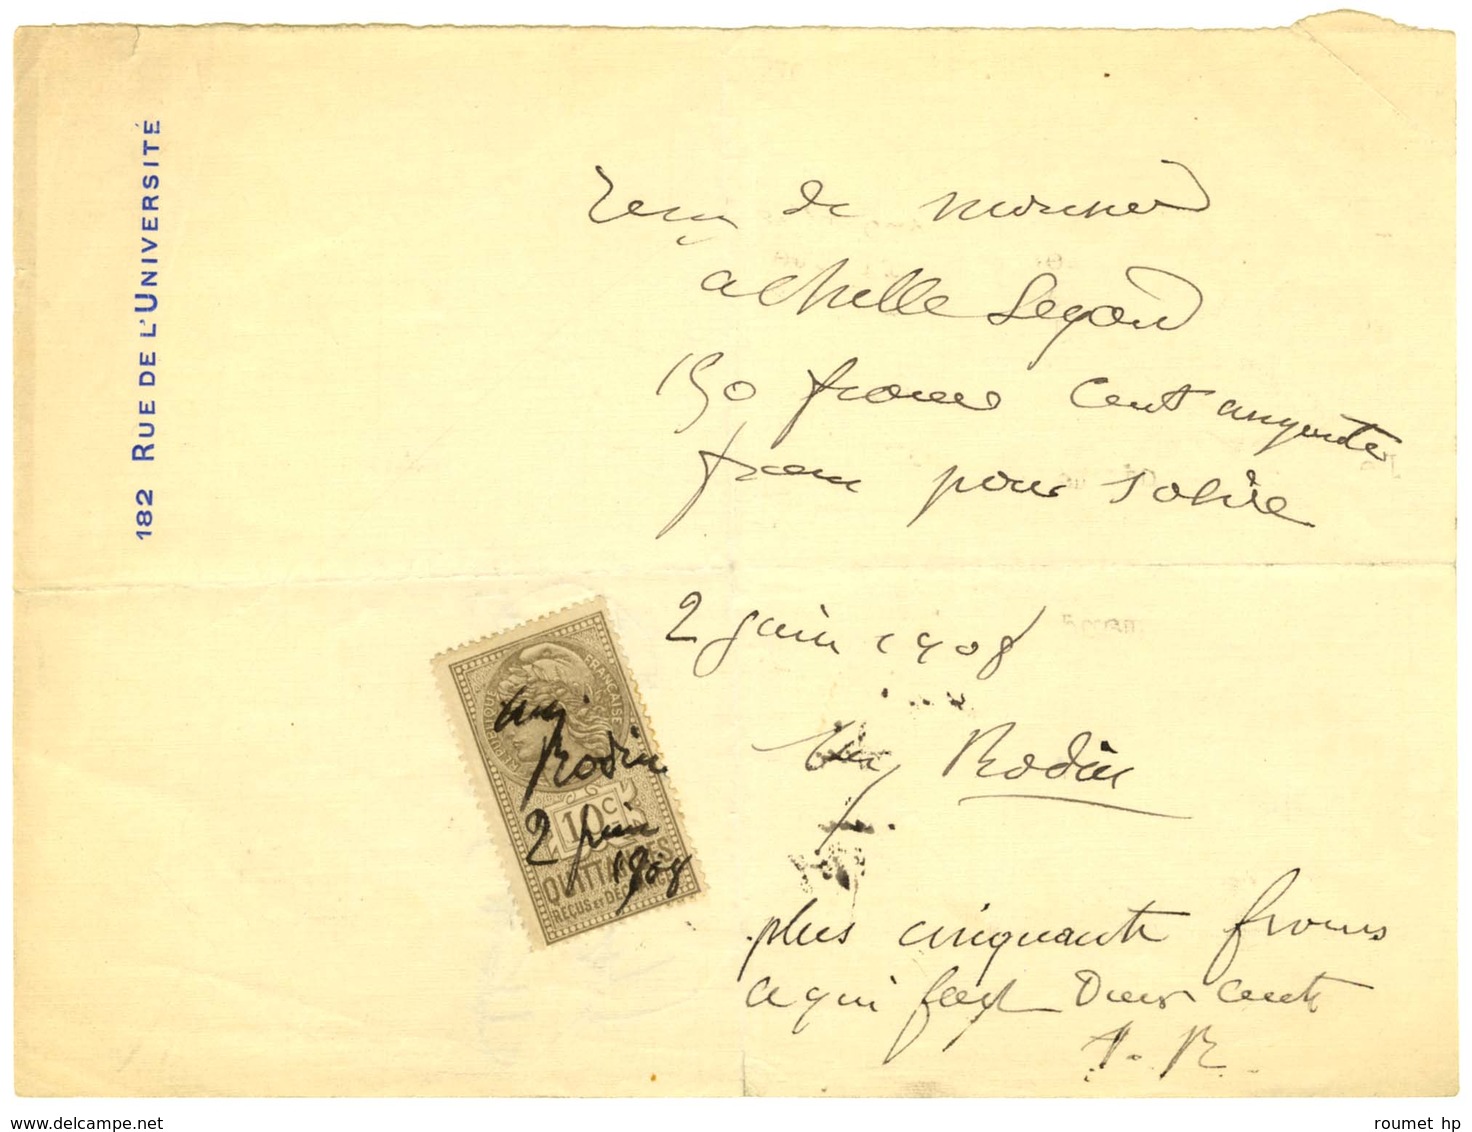 182 RUE DE L'UNIVERSITÉ
reçu de monsieur
achille Segard
150 francs cent cinquante
francs pour solde
2 juin 1908
Aug Rodin
RÉPUBLIQUE FRANÇAISE
Aug.
Rodin
10c
2 juin
1908
QUITTANCES
REÇUS ET DÉCHARGES
plus cinquante francs
ce qui fait deux cents
A. R.
delcampe.net
roumet hp